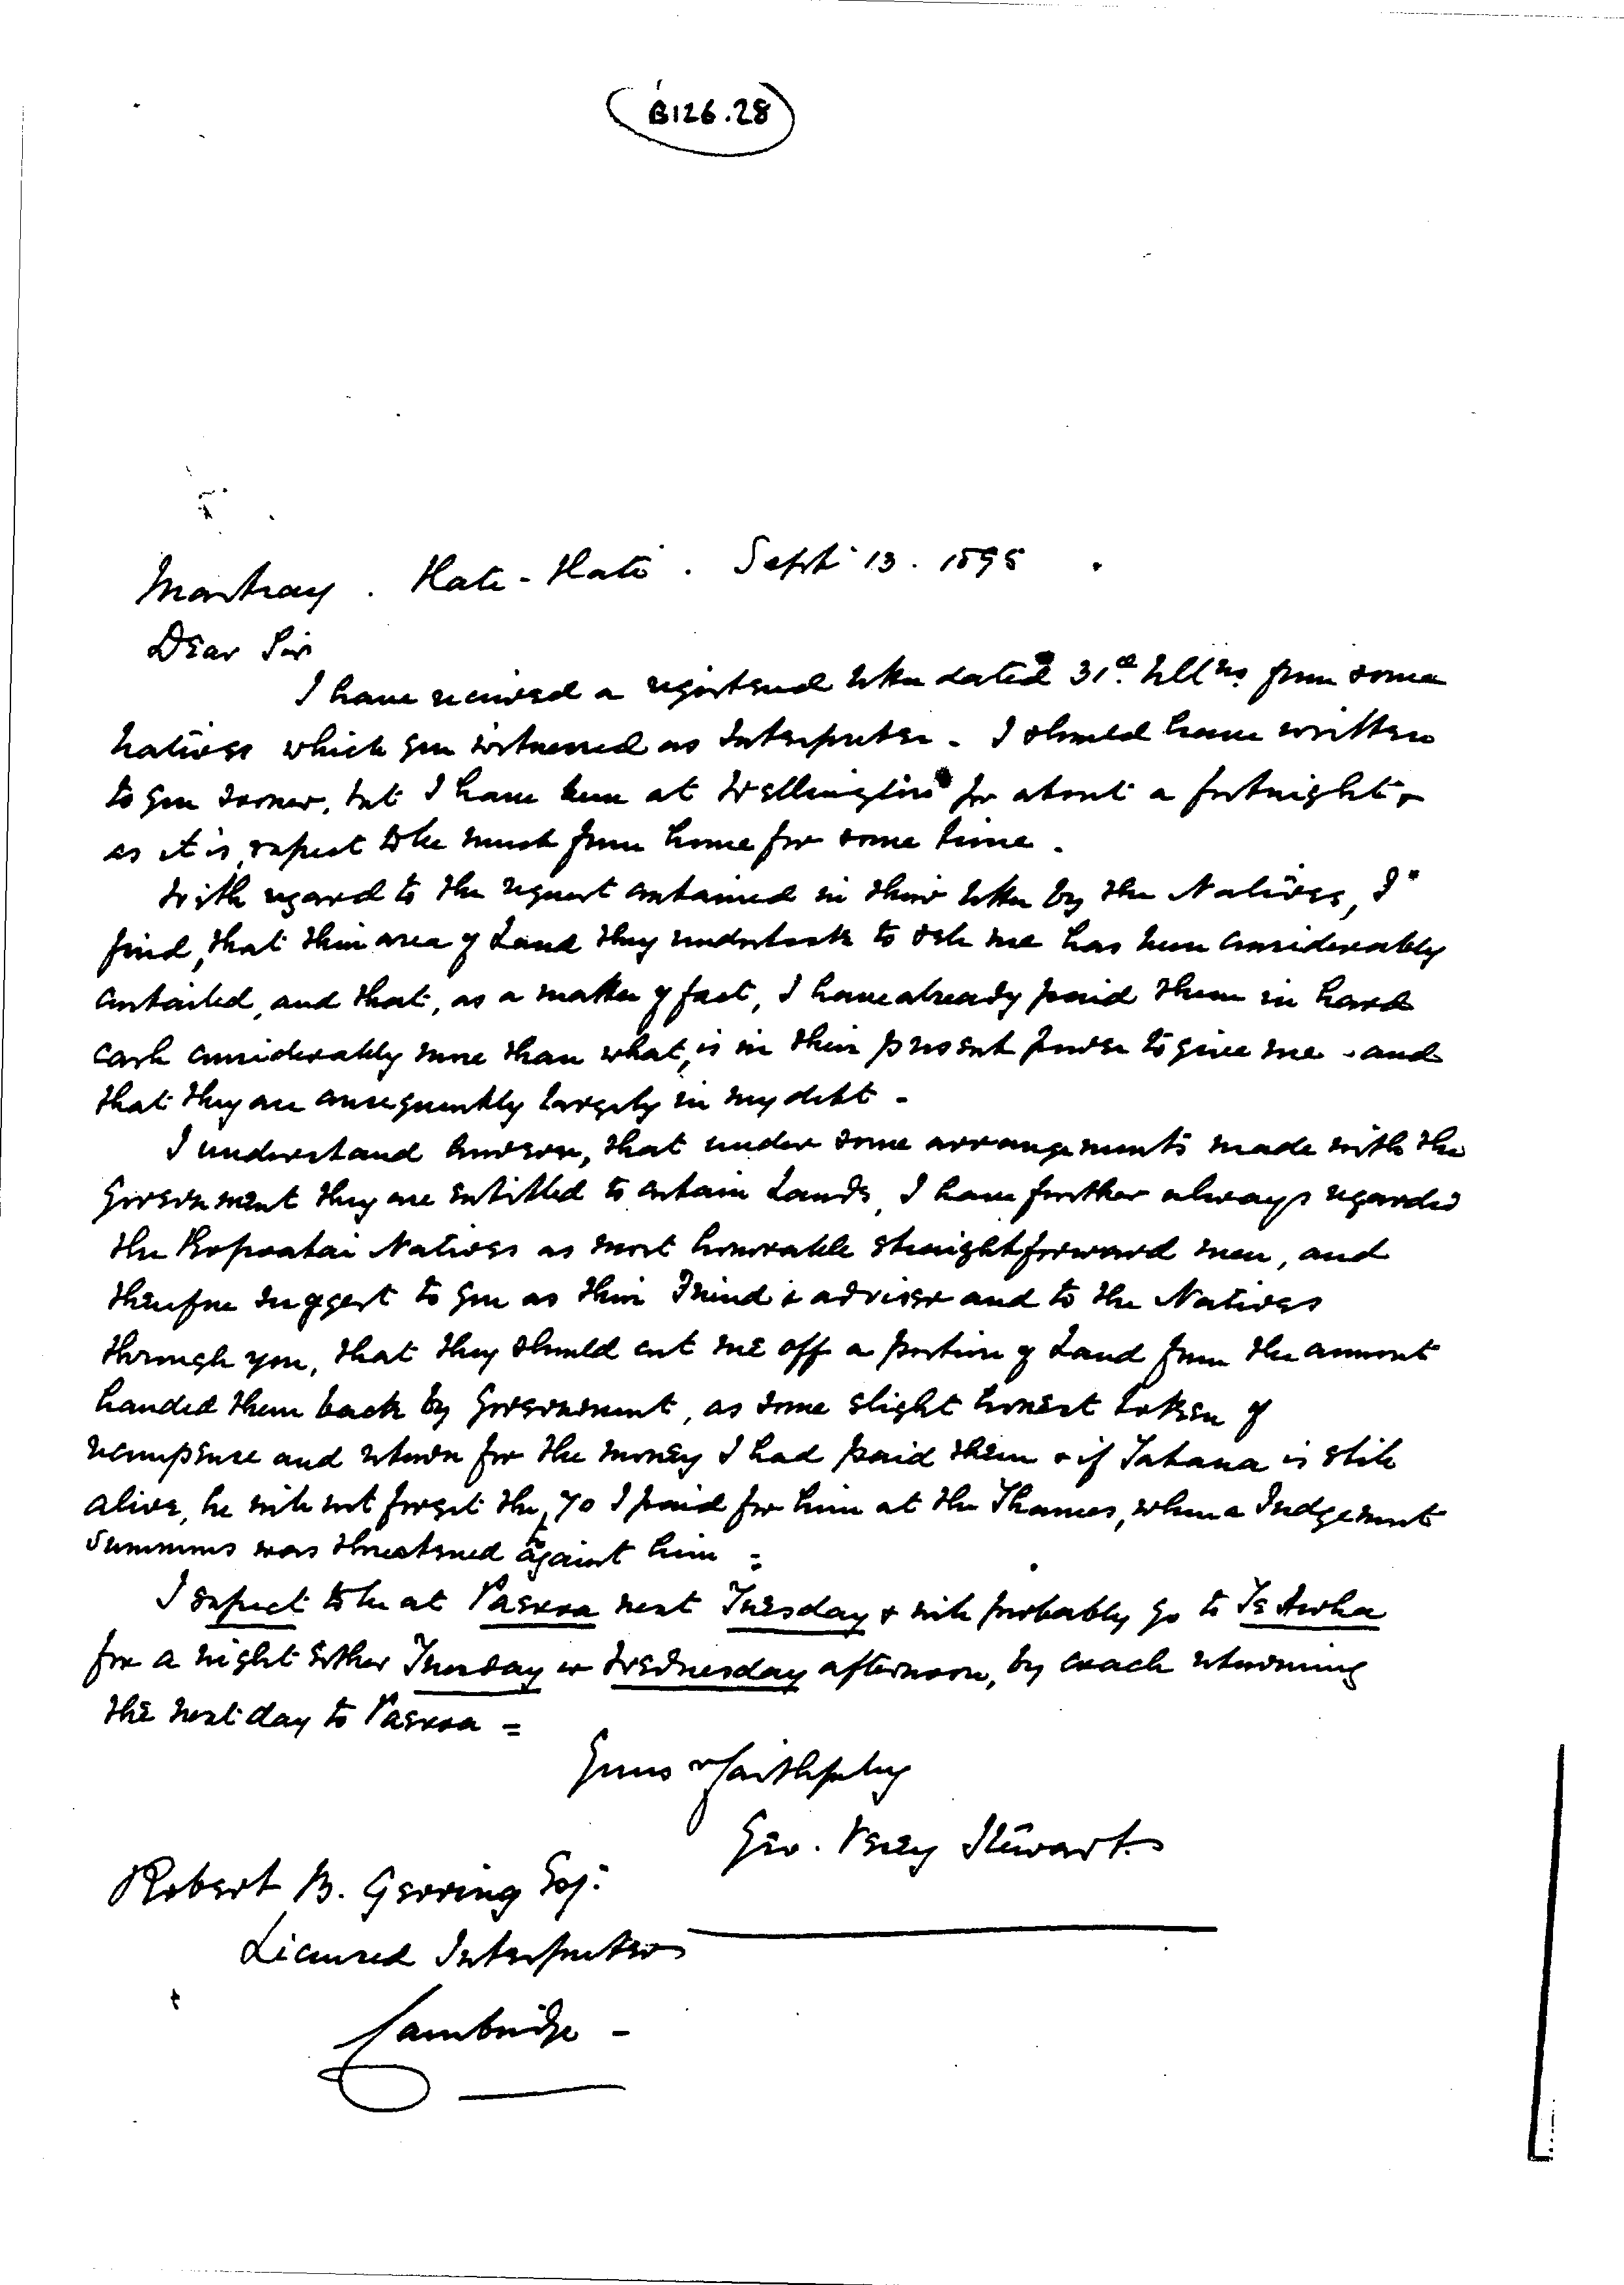 B126.28
Kati-Kati. Sept 13. 1895
Dear Sir
I have received a registered letter dated 31st from some
Natives which you witnessed as Interpreter. I should have written
to you sooner, but I have been at Wellington for about a fortnight &
as it is, expect to be much from home for some time.
With regard to the request contained in their letter by the Natives, I
find, that their area of Land they undertook to sell me has been considerably
curtailed, and that, as a matter of fact, I have already paid them in hard
cash considerably more than what, is in their present power to give me - and
that they are consequently largely in my debt -
I understand however, that under some arrangements made with the
Government they are entitled to certain Lands, I have further always regarded
the Natives as most honorable straightforward men, and
therefore suggest to you as their Friend & adviser and to the Natives
through you, that they should cut me off a portion of Land from the amount
handed them back by Government, as some slight honest token of
recompense and return for the money I had paid them & if Tahana is still
alive, he will not forget the, 70 I paid for him at the Thames, when a Judgement
Summons was threatened against him =
I expect to be at Paeroa next Tuesday & will probably go to Te Aroha
for a night either Tuesday or Wednesday afternoon, by coach returning
the next day to Paeroa =
Yours Faithfully
Geo. Vesey Stewart.
Robert B. Gerring Esq:
Licensed Interpreter
Cambridge -